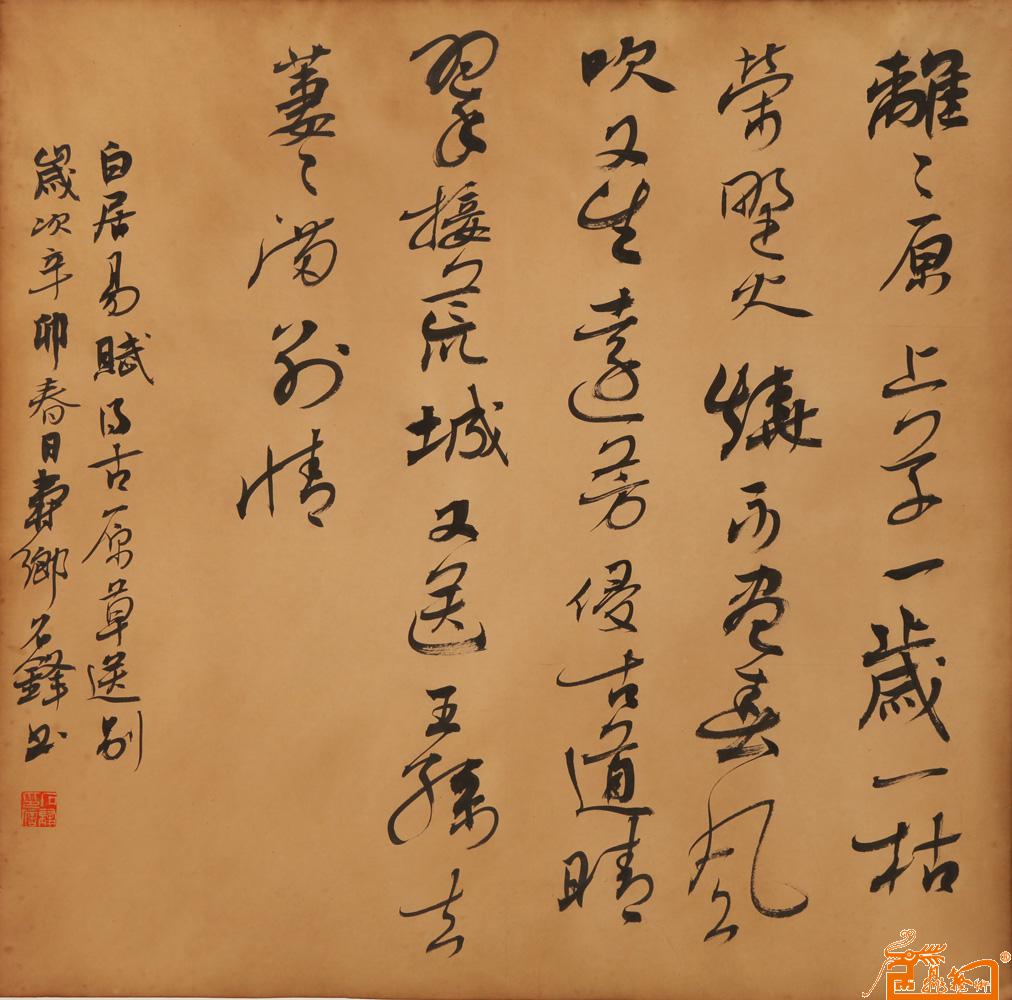 離々原上草一歲一枯
榮野火燒不盡春風
吹又生遠芳侵古道晴
翠接荒城又送王孫去
萋々滿別情
白居易賦得古原草送別
歲次辛卯春日壽鄉石鋒書